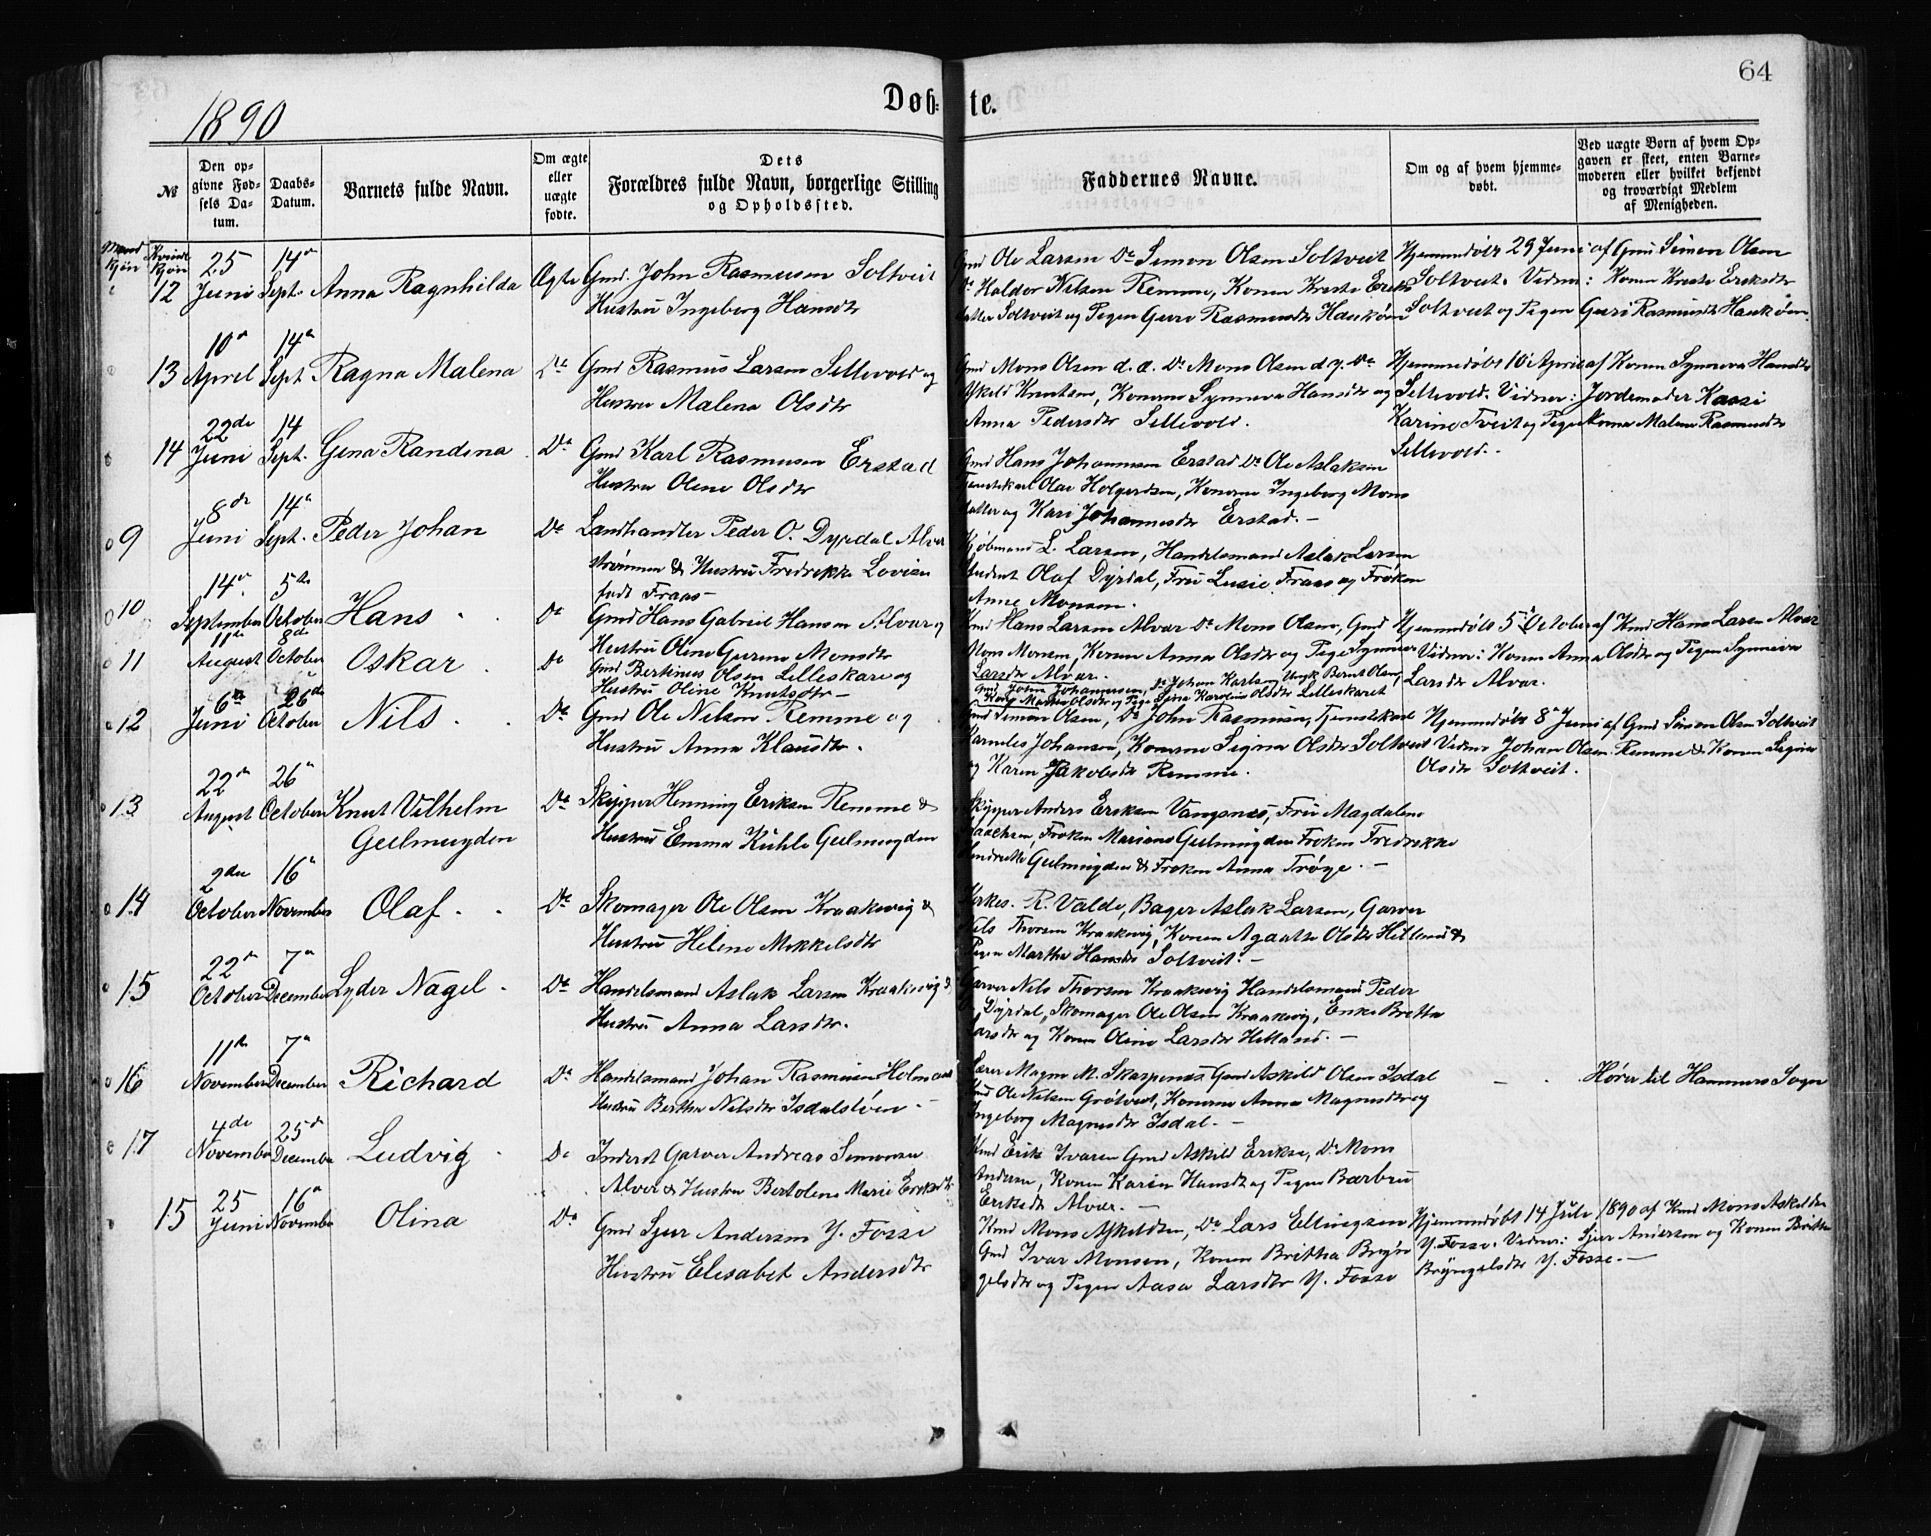 64
1890
Døb= te.
№
Den op=
givne Fød=
sels Da=
tum.
Daabs=
Datum.
Barnets fulde Navn.
Om ægte
eller
uægte
fødte.
Dets
Forældres fulde Navn, borgerlige Stilling
og Opholdssted.
Faddernes Navne.
Om og af hvem hjemme=
døbt.
Ved uægte Børn af hvem Op=
gaven er skeet, enten Barne=
moderen eller hvilket bekjendt
og troværdigt Medlem
af Menigheden.
Mand Kjøn Kvinde Kjøn
12 25 Juni 14 Sept. Anna Ragnhilda Ægte Gmd. John Rasmusen Soltveit
Hustru Ingeborg Hansdtr
Gmd Ole Larsen Do Simon Olsen Soltveit
Do Haldor Nilsen Remme, Konen Kreste Eriks
datter Soltveit og Pigen Guri Rasmusdtr
Hjemmedøbt 29 Juni af Gmd Simon Olsen
Soltveit. Vidner: Konen Kreste Eriksdtr
Soltveit og Pigen Guri Rasmusdtr
13 10 April 14 Sept Ragna Malena Do Gmd Rasmus Larsen Sellevold og
Hustru Malena Olsdtr
Gmd Mons Olsen d. æ. Do Mons Olsen d. y. Do
Askild Knutsen, Konerne Synneva Hansdtr og
Anna Pedersdtr Sellevold.
Hjemmedøbt 10 April af Konen Synneva Hansdtr
Sellevold. Vidner: Jordemoder
Karine Tveit og Pige Malene Rasmusdtr
Sellevold.
14 22de Juni 14 Sept. Gina Randina Do Gmd Karl Rasmusen Erstad
Hustru Oline Olsdtr
Gmd Hans Johannesen Erstad Do Ole Aslaksen
Tjenestekarl Olai Holgersen, Konerne Ingeborg Mons
datter og Kari Johannesdtr Erstad. —
9 8de Juni 14 Sept. Peder Johan Do Landhandler Peder O. Dyrdal Alver
strømmen & Hustru Fredrikke Lovise
født Fraas —
Kjøbmand L. Larsen, Handelsmand Aslak Larsen
Student Olaf Dyrdal, Fru Lusie Fraas og Frøken
Anne Monsen.
10 14 September 5te October Hans Do Gmd Hans Gabriel Hansen Alver og
Hustru Oline Gurine Monsdtr
Kmd Hans Larsen Alver Do Mons Olsen, Gmd
Mons Monsen, Konen Anna Olsdtr og Pige Synneva
Larsdtr Alver.
Hjemmedøbt 5 October af Kmd Hans Larsen Alver
Vidner: Konen Anna Olsdtr og Pigen Synneva
Larsdtr Alver.
11 11te August 8de October Oskar Do Gmd Bertinus Olsen Lilleskare og
Hustru Oline Knutsdtr —
Gmd John Johannesen, Do Johan Karlsen, Ungk Bernt Olsen,
Kone Martha Olsdtr og Pige Karoline Olsdtr Lilleskaret
12 6te Juni 26de October Nils Do Gmd Ole Nilsen Remme og
Hustru Anna Klausdtr.
Gmd Simon Olsen, Do John Rasmusen, Tjenestekarl
Karneles Johansen, Konerne Signa Olsdtr Soltveit
og Karen Jakobsdtr Remme.
Hjemmedøbt 8 Juni af Gmd Simon Olsen Soltveit
Vidner Johan Olsen Remme & Konen Signa
Olsdtr Soltveit.
13 22 August 26 October Knut Vilhelm
Geelmuyden Do Skipper Henning Eriksen Remme &
Hustru Emma Kühle Geelmuyden
Skipper Anders Eriksen Vangsnes, Fru Magdalene
Frøken Mariane Geelmuyden Frøken Fredrikke
Geelmuyden & Frøken Anna Trøye. —
14 2den October 16 November Olaf Do Skomager Ole Olsen Kraakevig &
Hustru Helene Mikkelsdtr
Kirkes. R. Valde, Bager Aslak Larsen, Garver
Nils Thorsen Kraakevig, Konen Agaatte Olsdtr Hilland &
Pigen Martha Hansdtr Soltveit. —
15 22 October 7 December Lyder Nagel Do Handelsmand Aslak Larsen Kraakevig &
Hustru Anna Larsdtr.
Garver Nils Thorsen Kraakevig Handelsmand Peder
Dyrdal, Skomager Ole Olsen Kraakevig, Enke Brettha
Larsdtr og Konen Oline Larsdtr Hilland. —
16 11te November 7 December Richard Do Handelsmand Johan Rasmusen Holmaas
Hustru Bertha Nilsdtr Isdalstøen —
Lærer Magne M. Skarpenes Gmd Askild Olsen Isdal
Gmd Ole Nilsen Grøtveit, Konerne Anna Magnesdtr og
Ingeborg Magnesdtr Isdal. —
— Hører til Hammers Sogn
17 4de November 25 December Ludvig Do Inderst Garver Andreas Simonsen
Alver & Hustru Bertoline Marie Eriksdtr
Kmd Erik Ivarsen Gmd Askild Eriksen, Do Mons
Andersen, Konen Karen Hansdtr og Pigen Barbru
Eriksdtr Alver. —
15 25 Juni 16 November Olina Do Gmd Sjur Andersen Y. Fosse
Hustru Elisabet Andersdtr
Kmd Mons Askildsen, Do Lars Ellingsen
Gmd Ivar Monsen, Konen Britha Bryn
gelsdtr og Pigen Aasa Larsdtr Y. Fosse
Hjemmedøbt 14 Juli 1890 af Kmd Mons Askildsen
Y. Fosse. Vidner: Sjur Andersen og Konen Brittha
Bryngelsdtr Y. Fosse. —